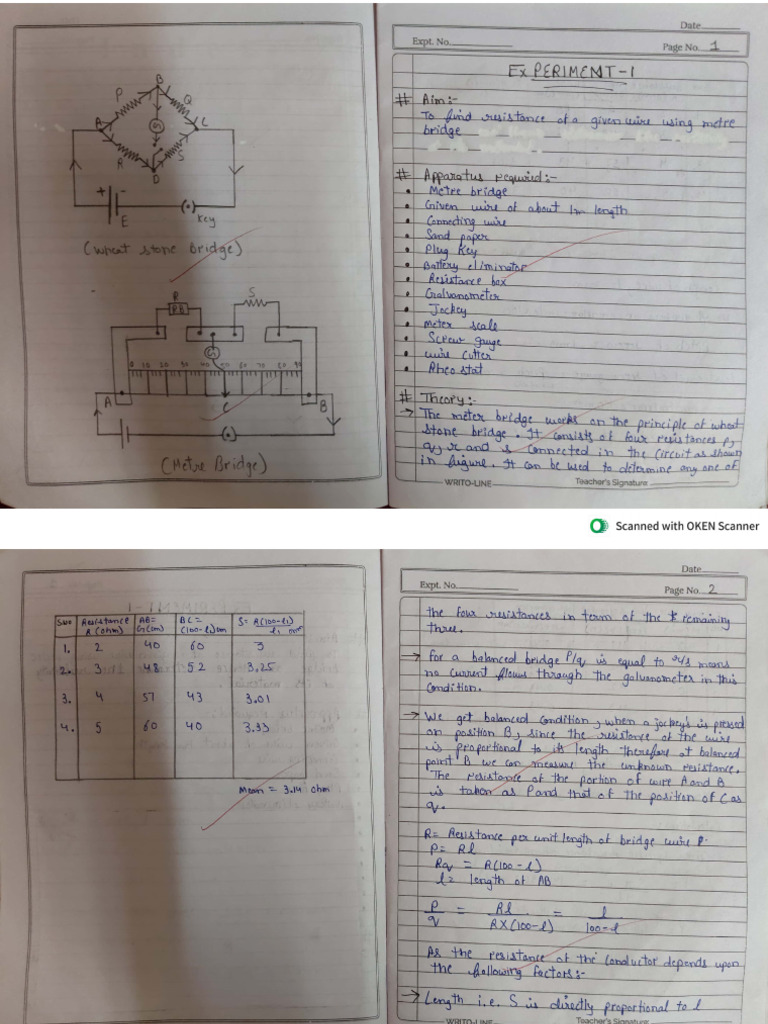 B
P
Q
A
G
C
R
S
D
+
-
E
Key
(wheat stone bridge)
R
S
RB
G
0 10 20 30 40 50 60 70 80 90
A
C
B
(Metre Bridge)
Date
Expt. No.
Page No. 1
EXPERIMENT-1
# Aim:-
To find resistance of a given wire using metre
bridge
# Apparatus required:-
• Metre bridge
• Given wire of about 1m length
• Connecting wire
• Sand paper
• Plug Key
• Battery eliminator
• Resistance box
• Galvanometer
• Jockey
• Meter scale
• Screw gauge
• wire cutter
• Rheostat
# Theory:-
→ The meter bridge works on the principle of wheat
stone bridge. It consists of four resistances p,
q, r and s connected in the circuit as shown
in figure. It can be used to determine any one of
WRITO-LINE
Teacher's Signature
Scanned with OKEN Scanner
S.no Resistance R (ohm) AB= (cm) BC= (100-l1)cm S= R(100-l1)/l1 ohm
1. 2 40 60 3
2. 3 48 52 3.25
3. 4 57 43 3.01
4. 5 60 40 3.33
Mean = 3.14 ohm
Date
Expt. No.
Page No. 2
the four resistances in term of the remaining
three.
→ For a balanced bridge P/q is equal to r/s means
no current flows through the galvanometer in this
condition.
→ We get balanced condition, when a jockey's is pressed
on position B, since the resistance of the wire
is proportional to its length therefore at balanced
point B we can measure the unknown resistance.
The resistance of the portion of wire A and B
is taken as P and that of the position of C as
q.
R= Resistance per unit length of bridge wire P.
P= Rl
Rq = R(100-l)
l= length of AB
P/q = Rl/RX(100-l) = l/100-l
As the resistance of the conductor depends upon
the following factors:-
→ Length i.e. S is directly proportional to l
WRITO-LINE
Teacher's Signature